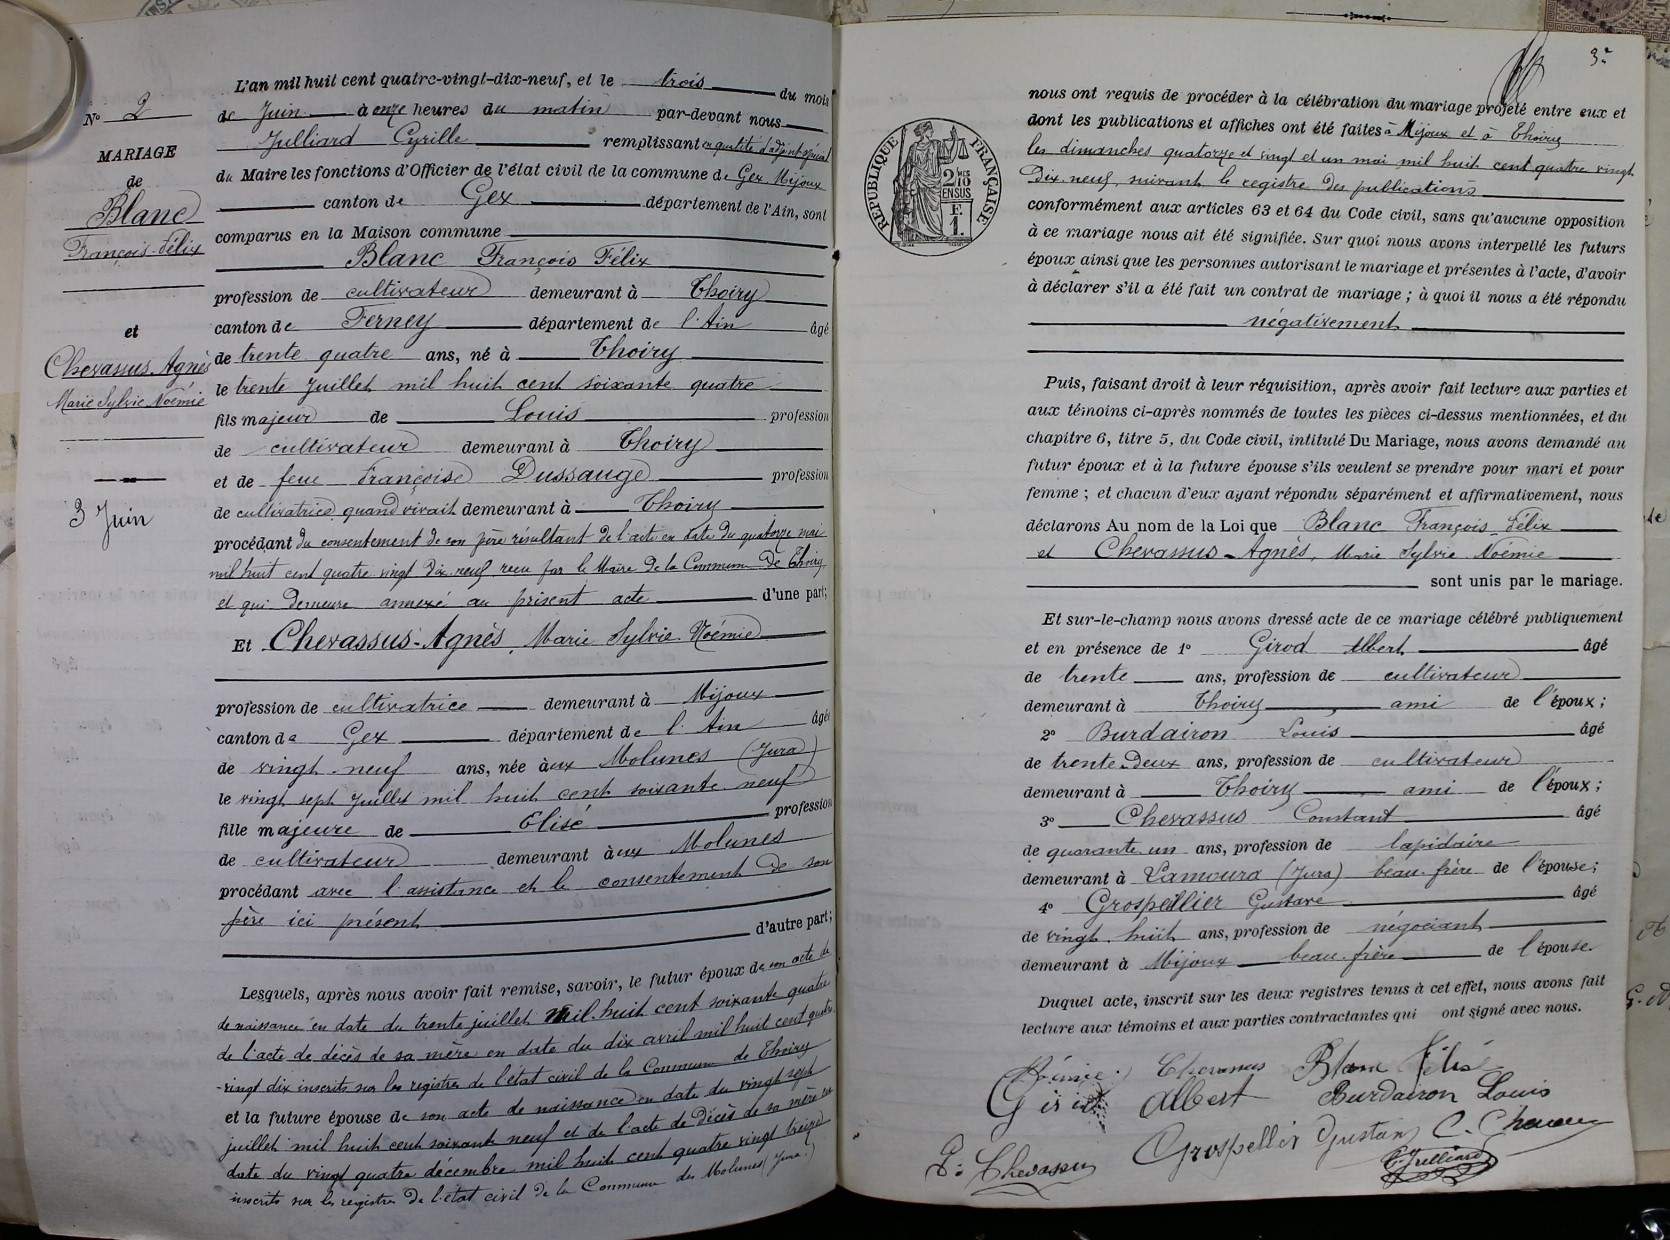 N° 2
MARIAGE
de
Blanc
François-Félix
et
Chevassus-Agnès
Marie Sylvie Noémie
3 Juin
L'an mil huit cent quatre-vingt-dix-neuf, et le trois du mois
de Juin à onze heures du matin par-devant nous
Julliard Cyrille remplissant en qualité d'adjoint spécial
du Maire les fonctions d'Officier de l'état civil de la commune de Gex-Mijoux
canton de Gex département de l'Ain, sont
comparus en la Maison commune
Blanc François Félix
profession de cultivateur demeurant à Thoiry
canton de Ferney département de l'Ain âgé
de trente quatre ans, né à Thoiry
le trente Juillet mil huit cent soixante quatre
fils majeur de Louis profession
de cultivateur demeurant à Thoiry
et de feue Françoise Dussauge profession
de cultivatrice quand vivait demeurant à Thoiry
procédant du consentement de son père résultant de l'acte en date du quatorze mai
mil huit cent quatre vingt dix neuf reçu par le Maire de la Commune de Thoiry
et qui demeure annexé au présent acte d'une part;
Et Chevassus-Agnès, Marie Sylvie Noémie
profession de cultivatrice demeurant à Mijoux
canton de Gex département de l'Ain âgée
de vingt-neuf ans, née àux Molunes (Jura)
le vingt sept Juillet mil huit cent soixante neuf
fille majeure de Elisé profession
de cultivateur demeurant àux Molunes
procédant avec l'assistance et le consentement de son
père ici présent
d'autre part;
Lesquels, après nous avoir fait remise, savoir, le futur époux de son acte de
de naissance en date du trente juillet mil huit cent soixante quatre
de l'acte de décès de sa mère en date du dix avril mil huit cent quatre
-vingt dix inscrits sur les registres de l'état civil de la Commune de Thoiry
et la future épouse de son acte de naissance en date du vingt sept
juillet mil huit cent soixante neuf et de l'acte de décès de sa mère en
date du vingt quatre décembre mil huit cent quatre vingt treize
inscrits sur les registres de l'état civil de la Commune des Molunes (Jura.)
3.
RÉPUBLIQUE FRANÇAISE
2/10
EN SUS
E.
1.
nous ont requis de procéder à la célébration du mariage projeté entre eux et
dont les publications et affiches ont été faites à Mijoux et à Thoiry
les dimanches quatorze et vingt et un mai mil huit cent quatre vingt
dix neuf, suivant le registre des publications
conformément aux articles 63 et 64 du Code civil, sans qu'aucune opposition
à ce mariage nous ait été signifiée. Sur quoi nous avons interpellé les futurs
époux ainsi que les personnes autorisant le mariage et présentes à l'acte, d'avoir
à déclarer s'il a été fait un contrat de mariage ; à quoi il nous a été répondu
négativement
Puis, faisant droit à leur réquisition, après avoir fait lecture aux parties et
aux témoins ci-après nommés de toutes les pièces ci-dessus mentionnées, et du
chapitre 6, titre 5, du Code civil, intitulé Du Mariage, nous avons demandé au
futur époux et à la future épouse s'ils veulent se prendre pour mari et pour
femme ; et chacun d'eux ayant répondu séparément et affirmativement, nous
déclarons Au nom de la Loi que Blanc François-Félix
et Chevassus-Agnès, Marie Sylvie Noémie
sont unis par le mariage.
Et sur-le-champ nous avons dressé acte de ce mariage célébré publiquement
et en présence de 1° Girod Albert âgé
de trente ans, profession de cultivateur
demeurant à Thoiry, ami de l'époux;
2° Burdairon Louis âgé
de trente-deux ans, profession de cultivateur
demeurant à Thoiry, ami de l'époux;
3° Chevassus Constant âgé
de quarante un ans, profession de lapidaire
demeurant à Lamoura (Jura) beau-frère de l'épouse;
4° Grospellier Gustave âgé
de vingt huit ans, profession de négociant
demeurant à Mijoux beau-frère de l'épouse.
Duquel acte, inscrit sur les deux registres tenus à cet effet, nous avons fait
lecture aux témoins et aux parties contractantes qui ont signé avec nous.
Noémie Chevassus Blanc Félix
Girod Albert Burdairon Louis
E. Chevassus Grospellier Gustave C. Chevassus
C. Julliard